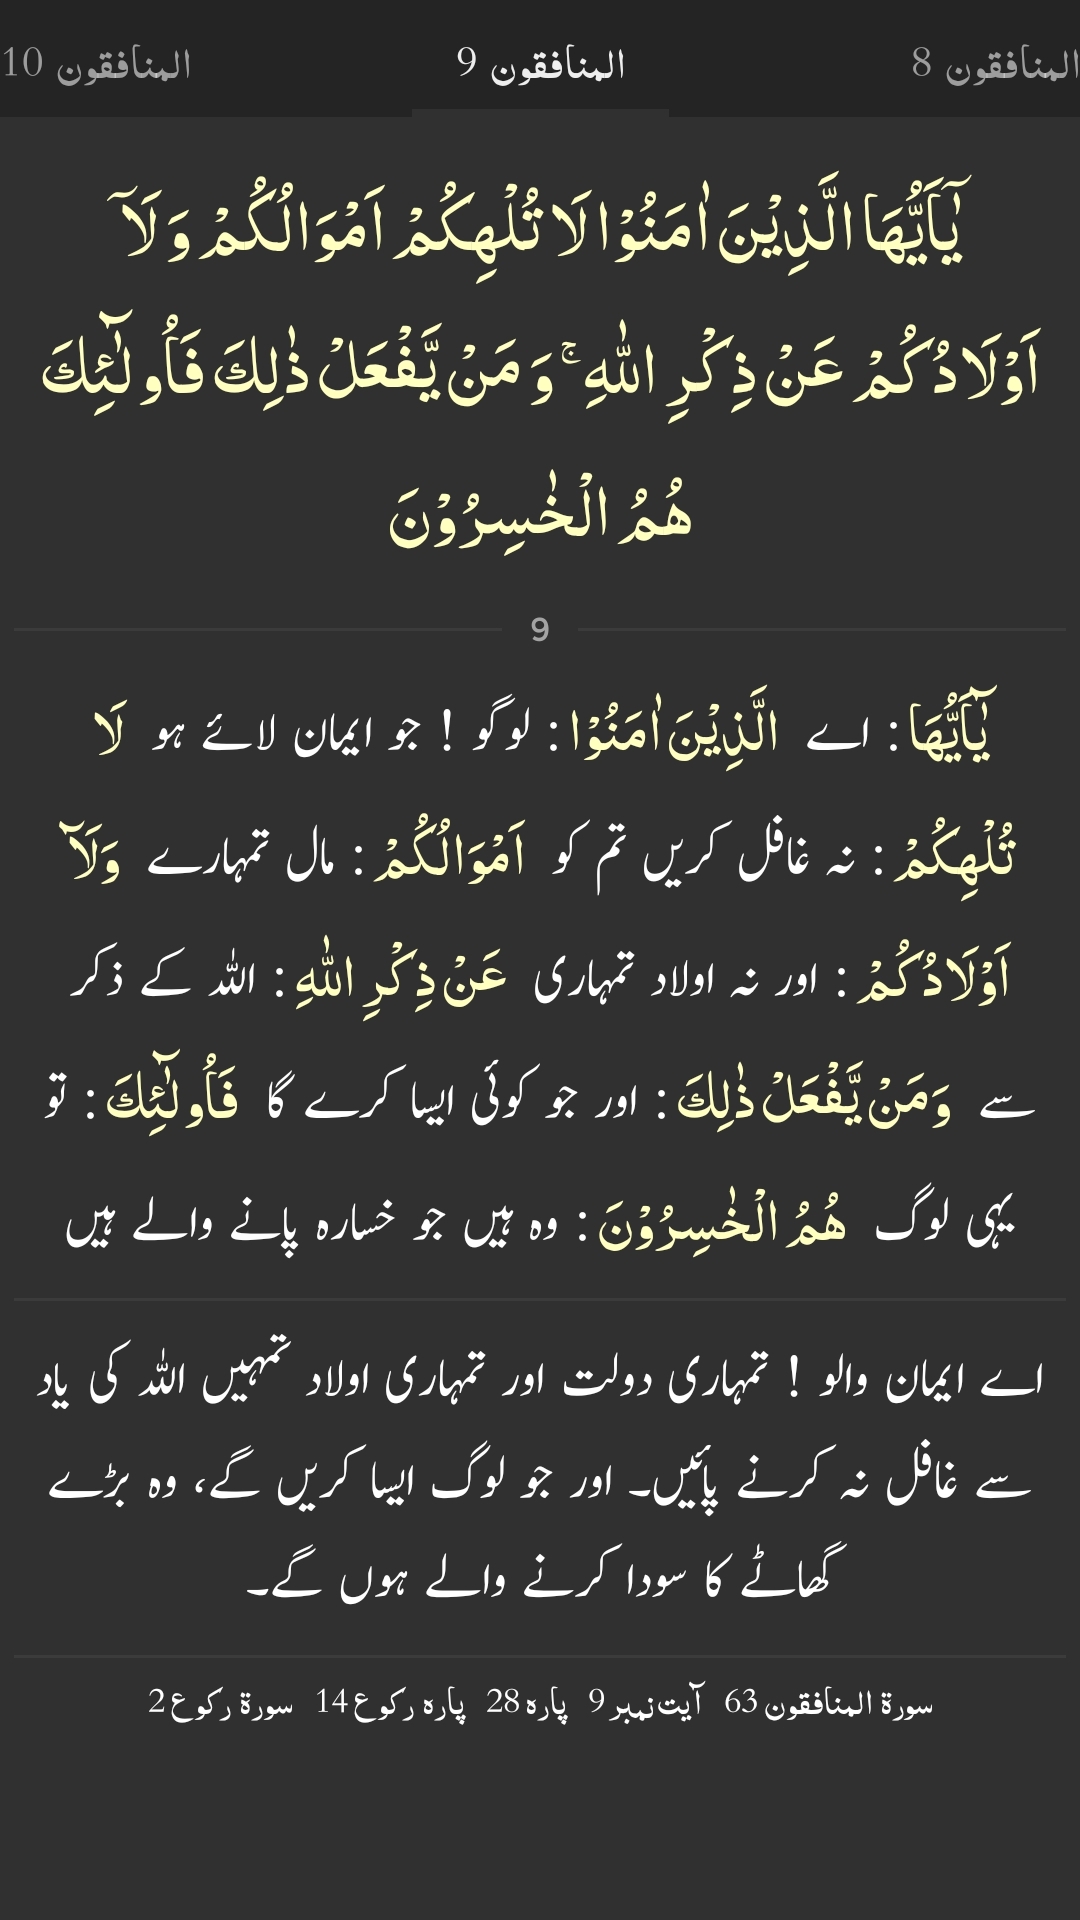 المنافقون 8
المنافقون 9
المنافقون 10
يٰٓاَيُّهَا الَّذِيْنَ اٰمَنُوْا لَا تُلْهِكُمْ اَمْوَالُكُمْ وَ لَآ
اَوْلَادُكُمْ عَنْ ذِكْرِ اللّٰهِ ۚ وَ مَنْ يَّفْعَلْ ذٰلِكَ فَاُولٰٓئِكَ
هُمُ الْخٰسِرُوْنَ
9
يٰٓاَيُّهَا : اے الَّذِيْنَ اٰمَنُوْا : لوگو ! جو ایمان لائے ہو لَا
تُلْهِكُمْ : نہ غافل کریں تم کو اَمْوَالُكُمْ : مال تمہارے وَلَآ
اَوْلَادُكُمْ : اور نہ اولاد تمہاری عَنْ ذِكْرِ اللّٰهِ : اللہ کے ذکر
سے وَمَنْ يَّفْعَلْ ذٰلِكَ : اور جو کوئی ایسا کرے گا فَاُولٰٓئِكَ : تو
یہی لوگ هُمُ الْخٰسِرُوْنَ : وہ ہیں جو خسارہ پانے والے ہیں
اے ایمان والو ! تمہاری دولت اور تمہاری اولاد تمہیں اللہ کی یاد
سے غافل نہ کرنے پائیں۔ اور جو لوگ ایسا کریں گے، وہ بڑے
گھاٹے کا سودا کرنے والے ہوں گے۔
سورۃ المنافقون 63 آیت نمبر 9 پارہ 28 پارہ رکوع 14 سورۃ رکوع 2